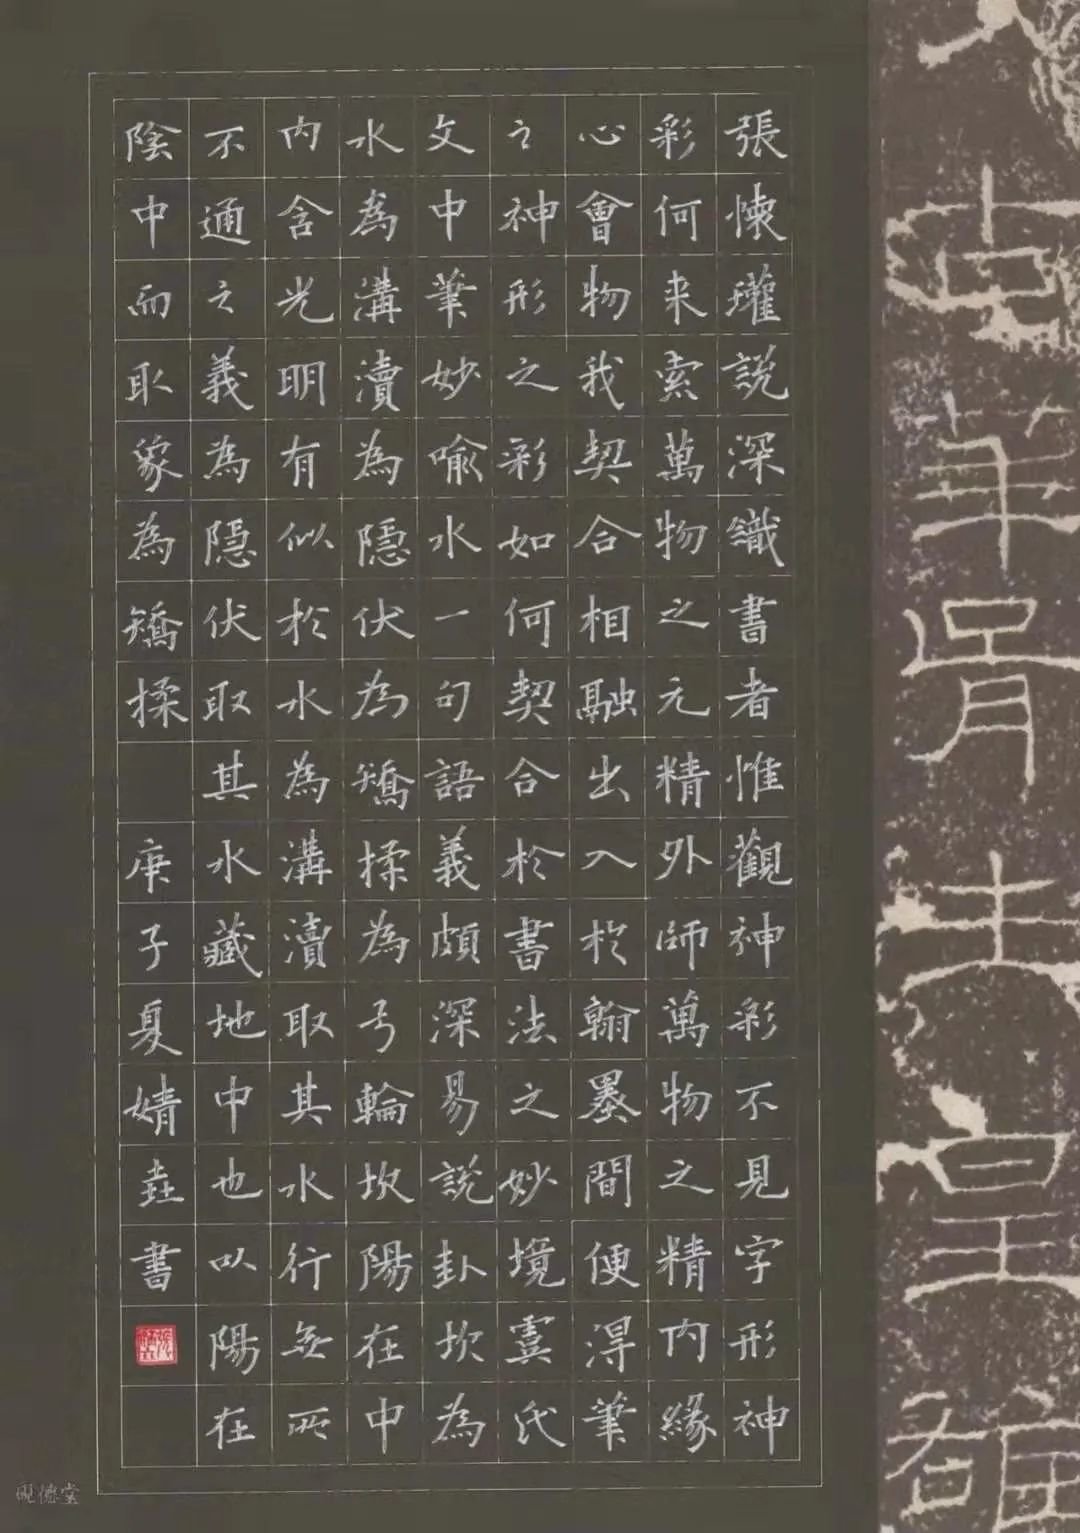 張懷瓘說深識書者惟觀神彩不見字形神
彩何来索萬物之元精外師萬物之精内緣
心會物我契合相融出入於翰墨間便淂筆
之神形之彩如何契合於書法之妙境寞氏
文中筆妙喻水一句語義頗深易說卦坎為
水為溝瀆為隱伏為矯揉為弓輪坎陽在中
内含光明有似於水為溝瀆取其水行無所
不通之義為隱伏取其水藏地中也以陽在
陰中而取象為矯揉
庚子夏婧垚書
硯德堂